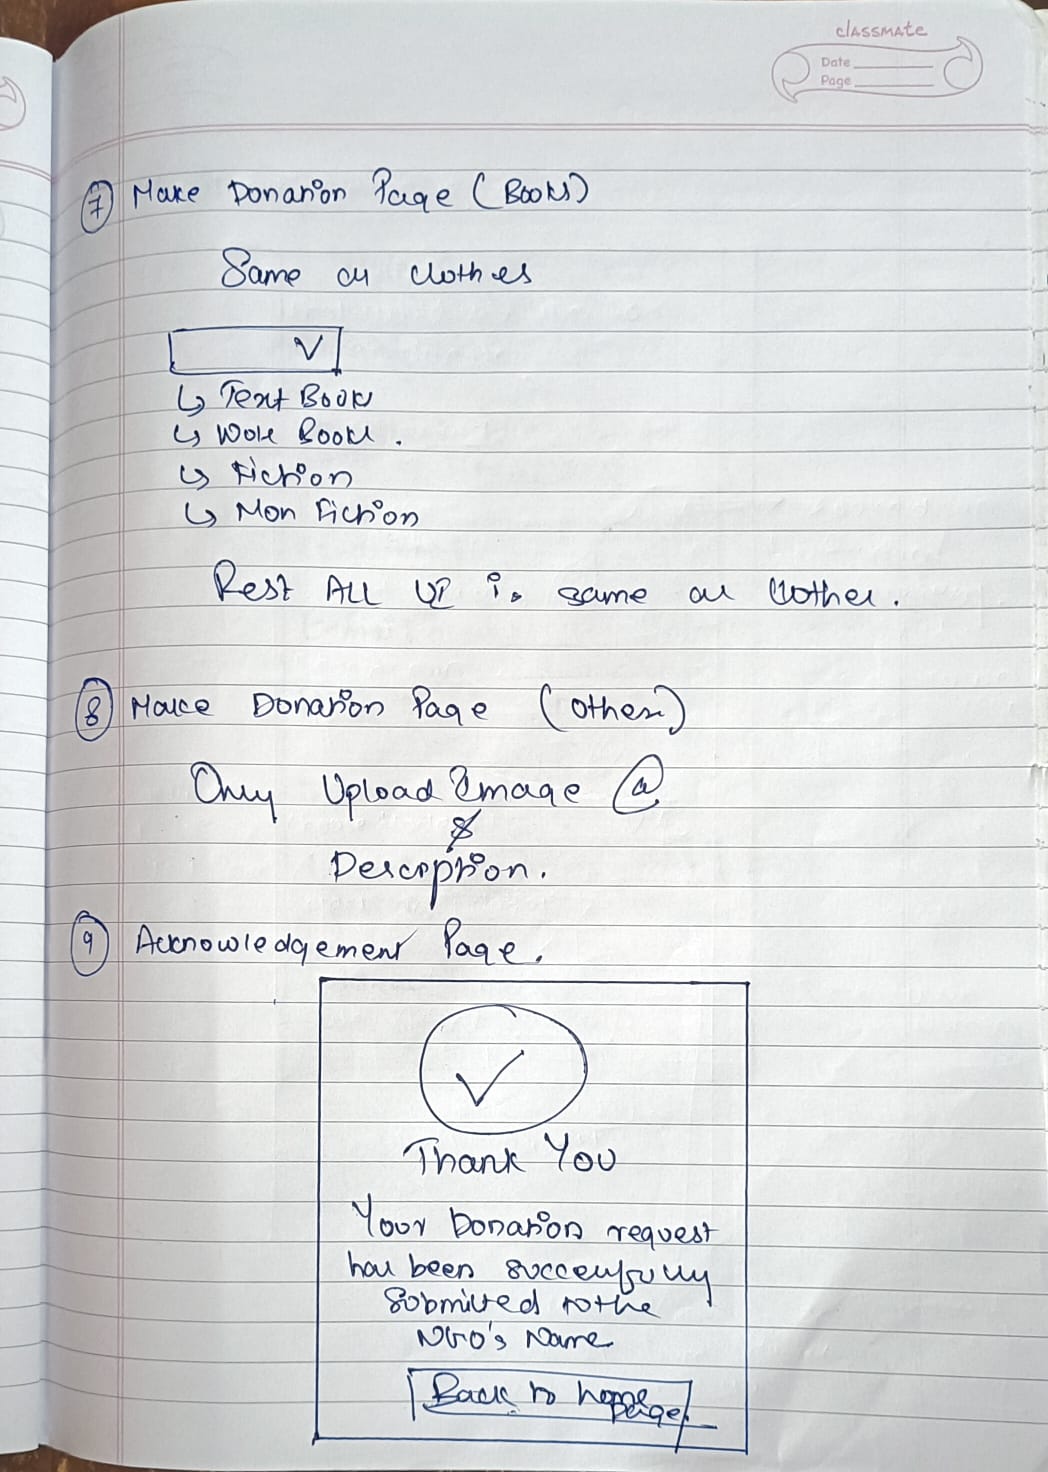 classmate
Date
Page
7 Make Donation Page (Books)
Same as clothes
↳ Text Book
↳ Work Book.
↳ Fiction
↳ Non Fiction
Rest ALL UI is same as Clothes.
8 Make Donation Page (Others)
Only Upload Image @
&
Description.
9 Acknowledgement Page.
✓
Thank You
Your Donation request
has been successfully
Submitted to the
NGO's Name
Back to home
page